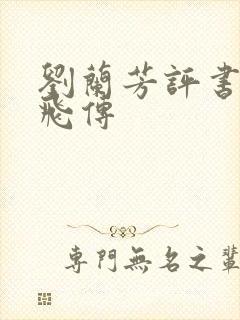 劉蘭芳評書
飛傳
專門無名之輩